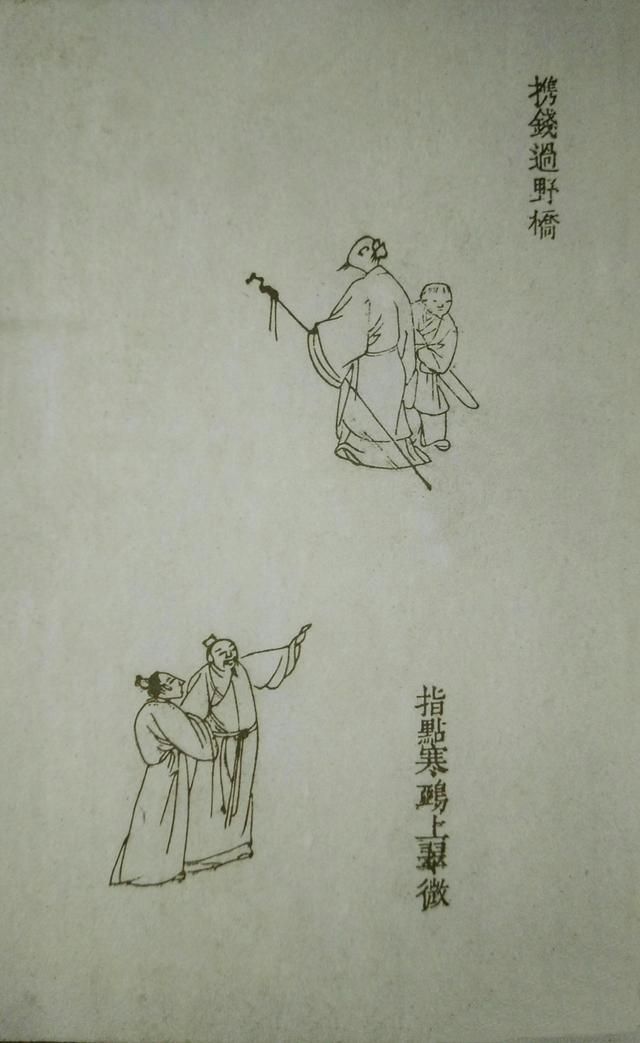 携錢過野橋
指點寒鴉上翠微